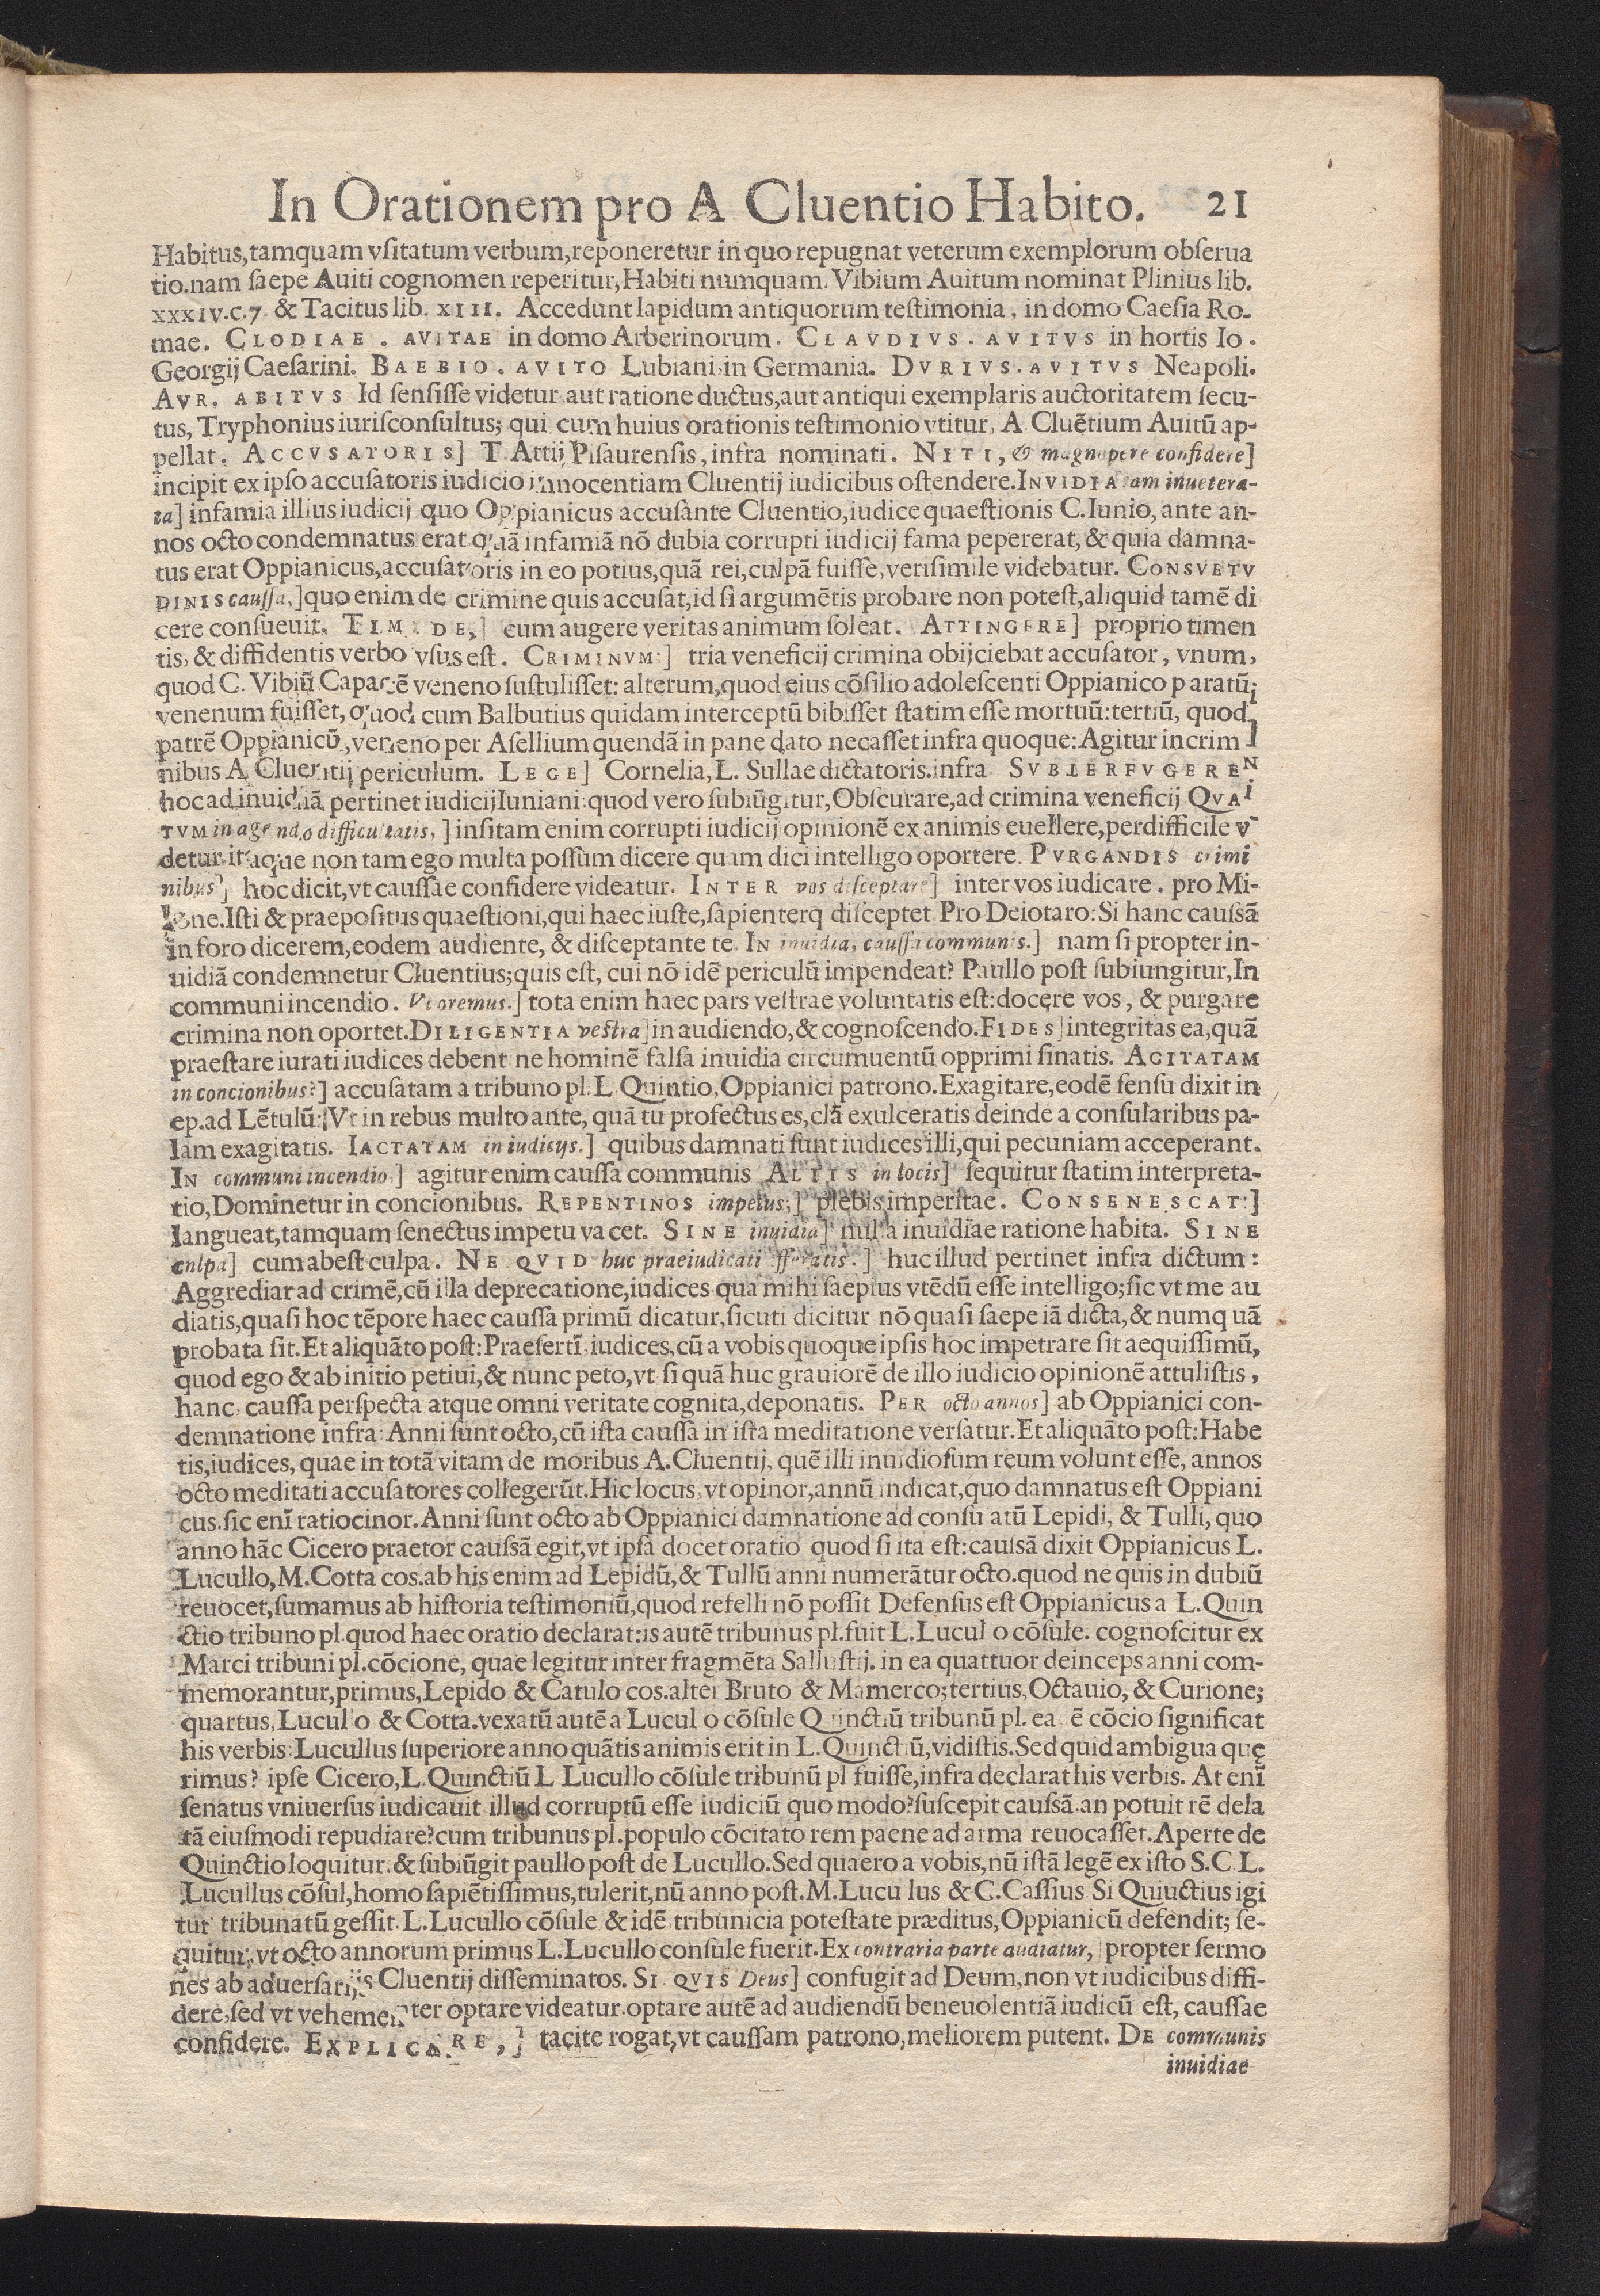 In Orationem pro A Cluentio Habito. 21
Habitus, tamquam vsitatum verbum, reponeretur in quo repugnat veterum exemplorum obserua
tio. nam saepe Auiti cognomen reperitur, Habiti numquam. Vibium Auitum nominat Plinius lib.
XXXIV. C. 7. & Tacitus lib. XIII. Accedunt lapidum antiquorum testimonia, in domo Caesia Ro-
mae. CLODIAE. AVITAE in domo Arberinorum. CLAVDIVS. AVITVS in hortis Io.
Georgij Caesarini. BAEBIO. AVITO Lubiani in Germania. DVRIVS. AVITVS Neapoli.
AVR. ABITVS Id sensisse videtur aut ratione ductus, aut antiqui exemplaris auctoritatem secu-
tus, Tryphonius iurisconsultus; qui cum huius orationis testimonio vtitur, A Cluẽtium Auitũ ap-
pellat. ACCVSATORIS] T. Attij Pisaurensis, infra nominati. NITI, & magnopere confidere]
incipit ex ipso accusatoris iudicio innocentiam Cluentij iudicibus ostendere. INVIDIA tam inuetera-
ta] infamia illius iudicij quo Oppianicus accusante Cluentio, iudice quaestionis C. Iunio, ante an-
nos octo condemnatus erat quã infamiã nõ dubia corrupti iudicij fama pepererat, & quia damna-
tus erat Oppianicus, accusatoris in eo potius, quã rei, culpã fuisse, verisimile videbatur. CONSVETV
DINIS caussa,] quo enim de crimine quis accusat, id si argumẽtis probare non potest, aliquid tamẽ di
cere consueuit. TIMIDE,] cum augere veritas animum soleat. ATTINGERE] proprio timen
tis, & diffidentis verbo vsus est. CRIMINVM:] tria veneficij crimina obijciebat accusator, vnum,
quod C. Vibiũ Capacẽ veneno sustulisset: alterum, quod eius cõsilio adolescenti Oppianico paratũ
venenum fuisset, quod cum Balbutius quidam interceptũ bibisset statim esse mortuũ: tertiũ, quod
patrẽ Oppianicũ, veneno per Asellium quendã in pane dato necasset infra quoque: Agitur in crim
nibus A Cluentij periculum. LEGE] Cornelia, L. Sullae dictatoris. infra SVBTERFVGERE
hoc ad inuidiã pertinet iudicij Iuniani: quod vero subiũgitur, Obscurare, ad crimina veneficij QVAN
TVM in agendo difficultatis,] insitam enim corrupti iudicij opinionẽ ex animis euellere, perdifficile vi
detur. itaque non tam ego multa possum dicere quam dici intelligo oportere. PVRGANDIS crimi
nibus] hoc dicit, vt caussae confidere videatur. INTER vos disceptare] inter vos iudicare. pro Mi-
lone. Isti & praepositus quaestioni, qui haec iuste, sapienterq disceptet Pro Deiotaro: Si hanc caussã
in foro dicerem, eodem audiente, & disceptante te. IN inuidia, caussa communis.] nam si propter in-
uidiã condemnetur Cluentius; quis est, cui nõ idẽ periculũ impendeat? Paullo post subiungitur, In
communi incendio. Vt oremus.] tota enim haec pars vestrae voluntatis est: docere vos, & purgare
crimina non oportet. DILIGENTIA vestra] in audiendo, & cognoscendo. FIDES] integritas ea, quã
praestare iurati iudices debent ne hominẽ falsa inuidia circumuentũ opprimi sinatis. AGITATAM
in concionibus?] accusatam a tribuno pl. L Quintio, Oppianici patrono. Exagitare, eodẽ sensu dixit in
ep. ad Lẽtulũ: Vt in rebus multo ante, quã tu profectus es, clã exulceratis deinde a consularibus pa-
lam exagitatis. IACTATAM in iudicijs.] quibus damnati sunt iudices illi, qui pecuniam acceperant.
IN communi incendio.] agitur enim caussa communis ALTIS in locis] sequitur statim interpreta-
tio, Dominetur in concionibus. REPENTINOS impetus;] plebis imperitae. CONSENESCAT:]
langueat, tamquam senectus impetu vacet. SINE inuidia] nulla inuidiae ratione habita. SINE
culpa] cum abest culpa. NE QVID huc praeiudicati afferatis.] huc illud pertinet infra dictum:
Aggrediar ad crimẽ, cũ illa deprecatione, iudices qua mihi saepius vtẽdũ esse intelligo; sic vt me au
diatis, quasi hoc tẽpore haec caussa primũ dicatur, sicuti dicitur nõ quasi saepe iã dicta, & numquã
probata sit. Et aliquãto post: Praesertĩ iudices, cũ a vobis quoque ipsis hoc impetrare sit aequissimũ,
quod ego & ab initio petiui, & nunc peto, vt si quã huc grauiorẽ de illo iudicio opinionẽ attulistis,
hanc caussa perspecta atque omni veritate cognita, deponatis. PER octo annos] ab Oppianici con-
demnatione infra: Anni sunt octo, cũ ista caussa in ista meditatione versatur. Et aliquãto post: Habe
tis, iudices, quae in totã vitam de moribus A. Cluentij, quẽ illi inuidiosum reum volunt esse, annos
octo meditati accusatores collegerũt. Hic locus, vt opinor, annũ indicat, quo damnatus est Oppiani
cus. sic enĩ ratiocinor. Anni sunt octo ab Oppianici damnatione ad consu atũ Lepidi, & Tulli, quo
anno hãc Cicero praetor caussã egit, vt ipsa docet oratio quod si ita est: causã dixit Oppianicus L.
Lucullo, M. Cotta cos. ab his enim ad Lepidũ, & Tullũ anni numerãtur octo. quod ne quis in dubiũ
reuocet, sumamus ab historia testimoniũ, quod refelli nõ possit Defensus est Oppianicus a L. Quin
ctio tribuno pl. quod haec oratio declarat: is autẽ tribunus pl. fuit L. Lucul o cõsule. cognoscitur ex
Marci tribuni pl. cõcione, quae legitur inter fragmẽta Sallustij. in ea quattuor deinceps anni com-
memorantur, primus, Lepido & Catulo cos. alter Bruto & Mamerco; tertius, Octauio, & Curione;
quartus, Lucul o & Cotta. vexatũ autẽ a Lucul o cõsule Quinctiũ tribunũ pl. ea ẽ cõcio significat
his verbis: Lucullus superiore anno quãtis animis erit in L. Quinctiũ, vidistis. Sed quid ambigua quę
rimus? ipse Cicero, L. Quinctiũ L Lucullo cõsule tribunũ pl fuisse, infra declarat his verbis. At enĩ
senatus vniuersus iudicauit illud corruptũ esse iudiciũ quo modo? suscepit caussã. an potuit rẽ dela
tã eiusmodi repudiare? cum tribunus pl. populo cõcitato rem paene ad arma reuocasset. Aperte de
Quinctio loquitur. & subiũgit paullo post de Lucullo. Sed quaero a vobis, nũ istã legẽ ex isto S. C L.
Lucullus cõsul, homo sapiẽtissimus, tulerit, nũ anno post. M. Lucu lus & C. Cassius Si Quiuctius igi
tur tribunatũ gessit L. Lucullo cõsule & idẽ tribunicia potestate præditus, Oppianicũ defendit; se-
quitur, vt octo annorum primus L. Lucullo consule fuerit. Ex contraria parte audiatur,] propter sermo
nes ab aduersarijs Cluentij disseminatos. SI QVIS Deus] confugit ad Deum, non vt iudicibus diffi-
dere, sed vt vehementer optare videatur. optare autẽ ad audiendũ beneuolentiã iudicũ est, caussae
confidere. EXPLICARE,] tacite rogat, vt caussam patrono, meliorem putent. DE communis
inuidiae